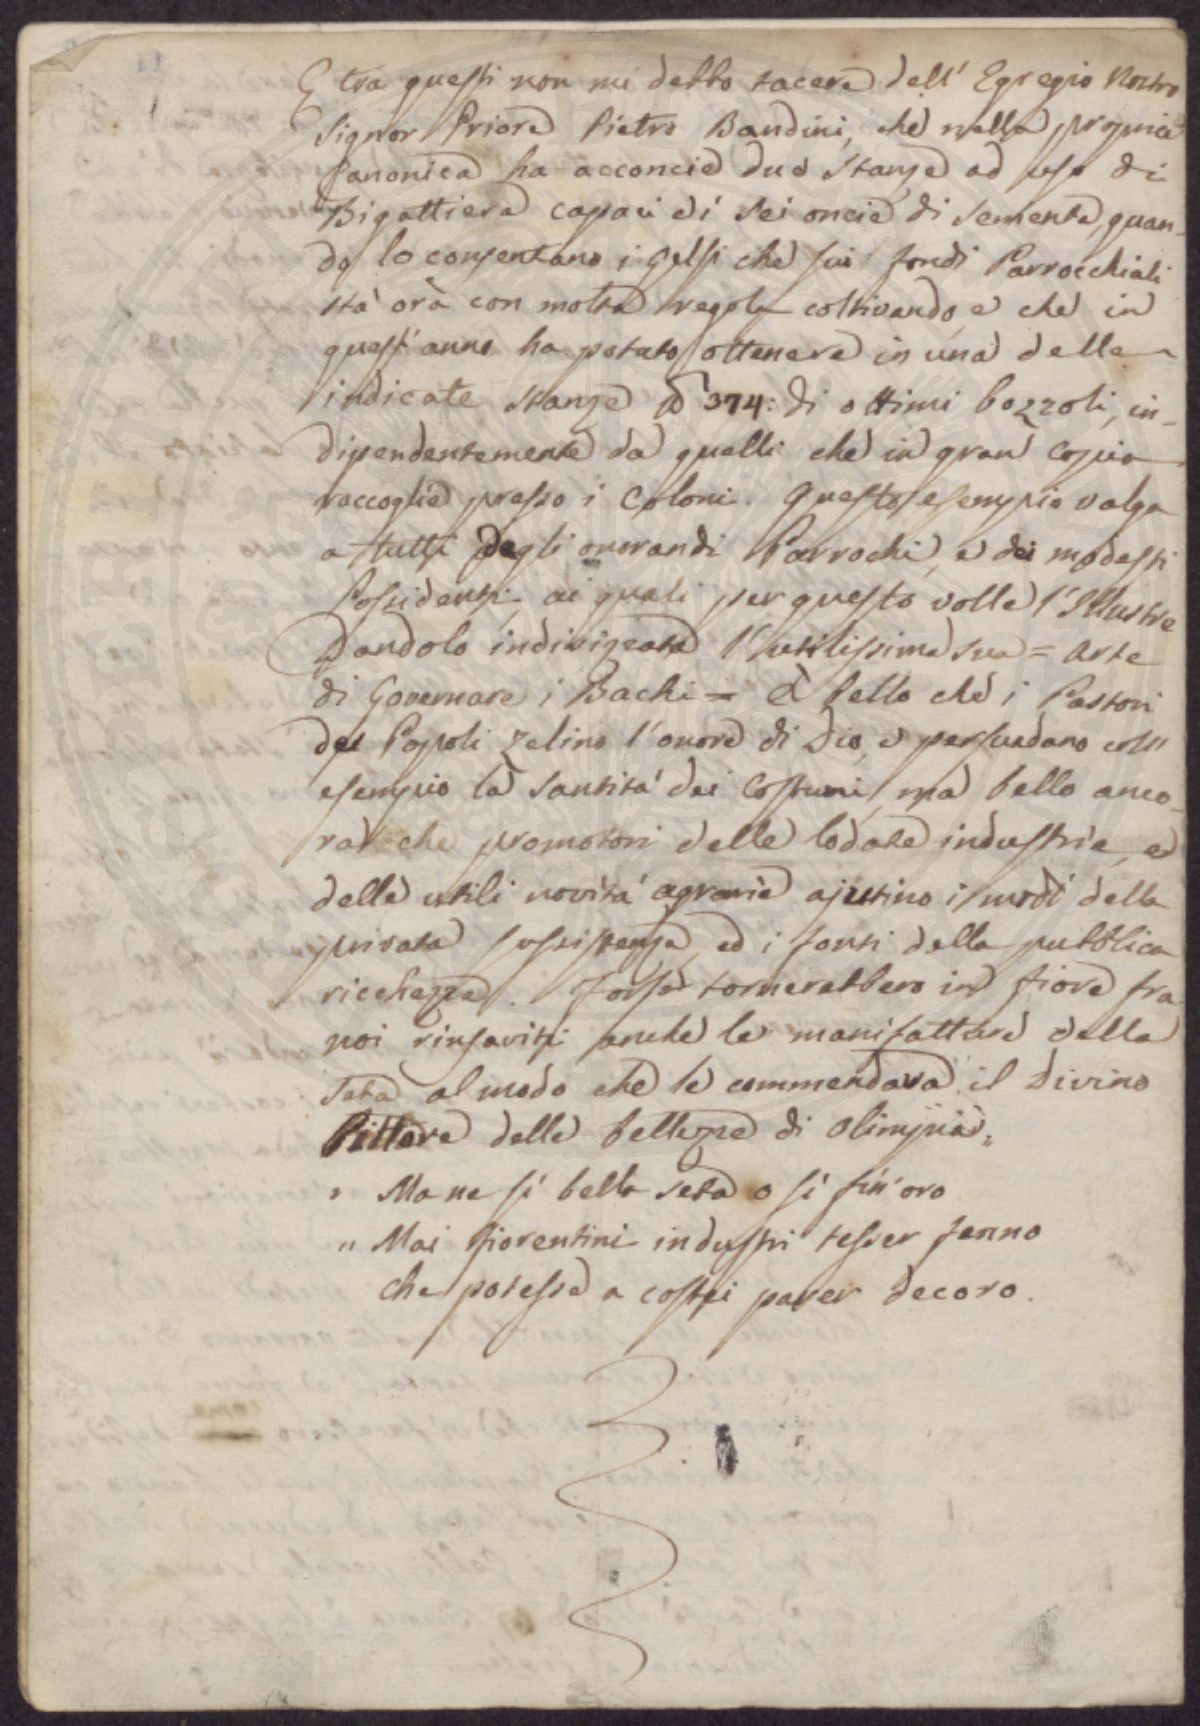 E tra questi non mi debbo tacere dell' Egregio Nostro
Signor Priore Pietro Bandini, che nella propria
Canonica ha acconcie due Stanze ad uso di
Bigattiera capaci di sei oncie di semente, quan-
do lo consentano i gelsi che sui fondi Parrocchiali
sta orà con molta regola coltivando, e che in
quest' anno ha potuto ottenere in una delle
indicate stanze 374: di ottimi bozzoli, in-
dipendentemente da quelli che in gran copia
raccoglie presso i Coloni. Questo esempio valga
a tutti degli onorandi Parrochi, e dei modesti
Possidenti ai quali per questo volle l'Illustre
Dandolo indirizzata l'utilissima sua = Arte
di Governare i Bachi = È bello che i Pastori
dei Popoli zelino l'onore di Dio, e persuadano coll'
esempio la santità dei Costumi, ma bello anco-
ra che promotori delle lodate industrie, ed
delle utili novità agrarie ajutino i modi della
privata sussistenza, ed i fonti della pubblica
ricchezza. Forse tornerebbero in fiore fra
noi rinsaviti anche le manifatture della
Seta al modo che le commendava il Divino
Pittore delle bellezze di Olimpia,
" Ma ne sì bella seta o sì fin' oro
" Mai fiorentini industri tesser fenno
che potesse a costei parer decoro.